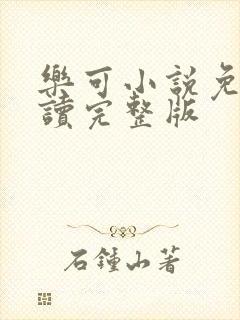 樂可小說免
讀完整版
石鍾山著